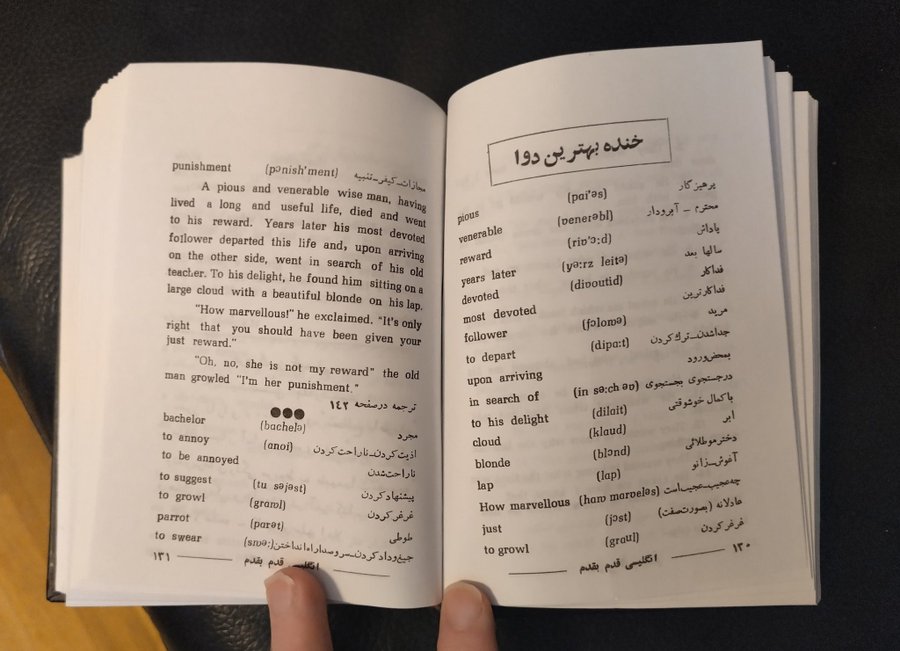 خنده بهترین دوا
pious (pɑi'əs) پرهیزگار
venerable (venerəbl) محترم - آبرودار
reward (riv'ɔ:d) پاداش
years later (yə:rz leitə) سالها بعد
devoted (divoutid) فداکار
most devoted فداکارترین
follower (fɔloɯə) مرید
to depart (dipɑ:t) جداشدن-ترك کردن
upon arriving بمحض ورود
in search of (in sə:ch əv) درجستجوی بجستجوی
to his delight (dilait) باکمال خوشوقتی
cloud (klaud) ابر
blonde (blɔnd) دخترموطلائی
lap (lap) آغوش-زانو
How marvellous (haɯ marvələs) چه عجیب-عجیب است
just (jɔst) عادلانه (بصورت صفت)
to growl (graul) غرغرکردن
انگلیسی قدم بقدم ۱۳۰
punishment (pɔnish'ment) مجازات-کیفر-تنبیه
A pious and venerable wise man, having
lived a long and useful life, died and went
to his reward. Years later his most devoted
follower departed this life and, upon arriving
on the other side, went in search of his old
teacher. To his delight, he found him sitting on a
large cloud with a beautiful blonde on his lap.
"How marvellous!" he exclaimed. "It's only
right that you should have been given your
just reward."
"Oh, no, she is not my reward" the old
man growled "I'm her punishment."
ترجمه درصفحه ۱۴۲
bachelor (bachelə) مجرد
to annoy (anoi) اذیت کردن-ناراحت کردن
to be annoyed ناراحت شدن
to suggest (tu səjəst) پیشنهاد کردن
to growl (graɯl) غرغرکردن
parrot (parət) طوطی
to swear (sɯə:) جیغ و داد کردن-سروصدا راه انداختن
۱۳۱ انگلیسی قدم بقدم